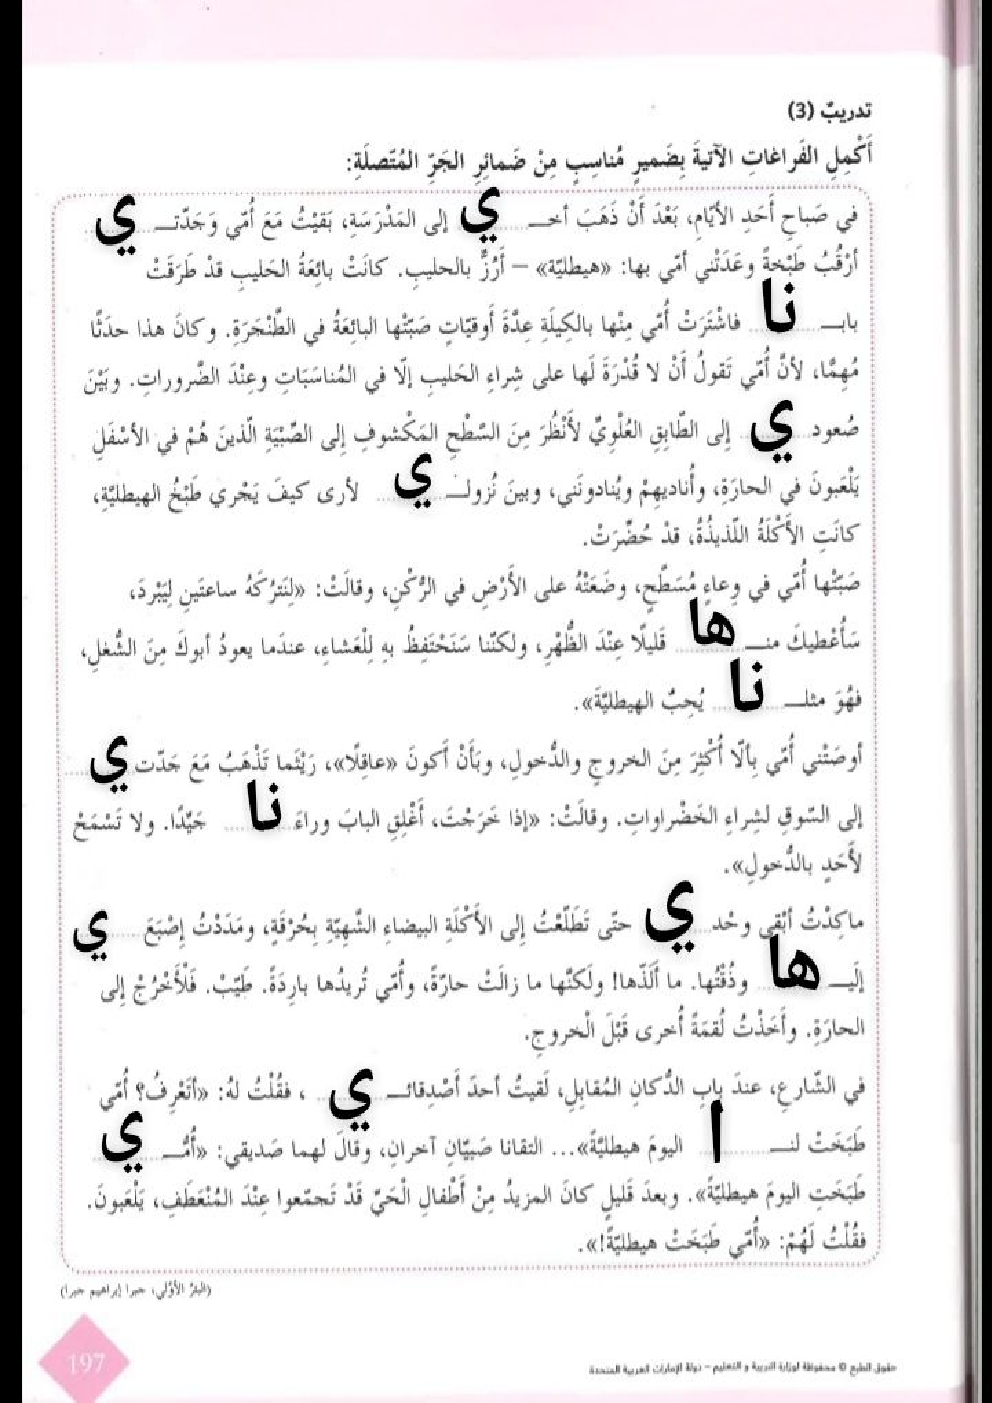 تدريبٌ (3)
أَكْمِلِ الفَراغاتِ الآتيةَ بِضَميرٍ مُناسِبٍ مِنْ ضَمائِرِ الجَرِّ المُتَّصلَةِ:
في صَباحِ أَحَدِ الأَيّامِ، بَعْدَ أَنْ ذَهَبَ أخــي إلى المَدْرَسَةِ، بَقيْتُ مَعَ أُمّي وَجَدّتــي
أرْقُبُ طَبْخةً وعَدَتْني أمّي بها: «هيطليّة» – أَرُزٌّ بالحليبِ. كانَتْ بائِعَةُ الحَليبِ قدْ طَرَقَتْ
بابــنا فاشْتَرَتْ أُمّي مِنْها بالكِيلَةِ عِدَّةَ أَوقيّاتٍ صَبَّتْها البائِعَةُ في الطَّنْجَرَةِ. وكانَ هذا حدَثًا
مُهِمًّا، لأنَّ أُمّي تَقولُ أَنْ لا قُدْرَةَ لَها على شِراءِ الحَليبِ إلّا في المُناسَبَاتِ وعِنْدَ الضَّروراتِ. وبَيْنَ
صُعودي إلى الطّابِقِ العُلْوِيِّ لأَنْظُرَ مِنَ السَّطْحِ المَكْشوفِ إلى الصِّبْيَةِ الّذينَ هُمْ في الأسْفَلِ
يَلْعَبونَ في الحارَةِ، وأُناديهِمْ ويُنادونَني، وبينَ نُزولــي لأرى كيفَ يَجْري طَبْخُ الهيطليَّةِ،
كانَتِ الأَكْلَةُ اللّذيذُةُ، قدْ حُضِّرَتْ.
صَبَّتْها أُمّي في وِعاءٍ مُسَطَّحٍ، وضَعَتْهُ على الأَرْضِ في الرُّكْنِ، وقالَتْ: «لِنَتْرُكَهُ ساعتَينِ لِيَبْردَ،
سَأُعْطيكَ منــها قليلًا عِنْدَ الظُّهْرِ، ولكنّنا سَنَحْتَفِظُ بهِ لِلْعَشاءِ، عندَما يعودُ أبوكَ مِنَ الشُّغلِ،
فهُوَ مثلــنا يُحِبُّ الهيطليَّةَ».
أوصَتْني أُمّي بِألّا أُكْثِرَ مِنَ الخروجِ والدُّخولِ، وبَأَنْ أكونَ «عاقِلًا»، رَيْثَما تَذْهَبُ مَعَ جَدّتي
إلى السّوقِ لشِراءِ الخَضْراواتِ. وقالَتْ: «إذا خَرَجْتَ، أَغْلِقِ البابَ وراءَنا جَيِّدًا. ولا تَسْمَحْ
لأَحَدٍ بالدُّخولِ».
ماكِدْتُ أبْقى وحْدي حتّى تَطَلّعْتُ إلى الأَكْلَةِ البيضاءِ الشَّهيّةِ بِحُرْقَةٍ، ومَدَدْتُ إصْبَعَي
إلَيــها وذُقْتُها. ما أَلَذّها! ولَكنَّها ما زالَتْ حارّةً، وأُمّي تُريدُها بارِدَةً. طَيّبْ. فَلْأَخْرُجْ إلى
الحارَةِ. وأَخَذْتُ لُقمَةً أُخرى قَبْلَ الْخروجِ.
في الشّارعِ، عندَ بابِ الدُّكانِ المُقابِلِ، لَقيتُ أحدَ أَصْدِقائــي، فقُلْتُ لهُ: «أتَعْرِفُ؟ أُمّي
طَبَخَتْ لنــا اليومَ هيطليَّةً»... التقانا صَبيّانِ آخرانِ، وقالَ لهما صَديقي: «أُمُّــي
طَبَخَتِ اليومَ هيطليَّةً». وبعدَ قليلٍ كانَ المزيدُ مِنْ أَطْفالِ الْحَيِّ قَدْ تَجمّعوا عِنْدَ المُنْعَطَفِ، يَلْعَبونَ.
فقُلْتُ لَهُمْ: «أُمّي طَبَخَتْ هيطليّةً!».
(البئرُ الأوّلى، جبرا إبراهيم جبرا)
حقوق الطبع © محفوظة لوزارة التربية و التعليم – دولة الإمارات العربية المتحدة
197